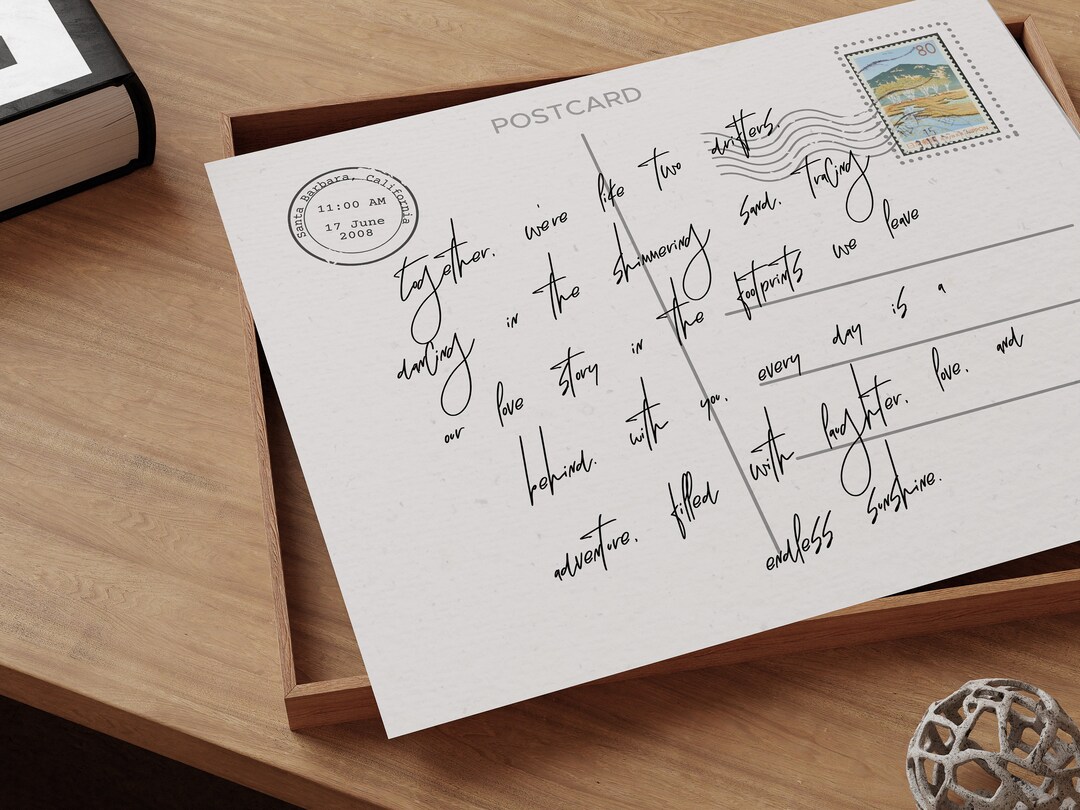 POSTCARD
80
Santa Barbara, California
11:00 AM
17 June
2008
together, we're like two drifters,
dancing in the shimmering sand, tracing
our love story in the footprints we leave
behind. with you, every day is a
adventure, filled with laughter, love, and
endless sunshine.